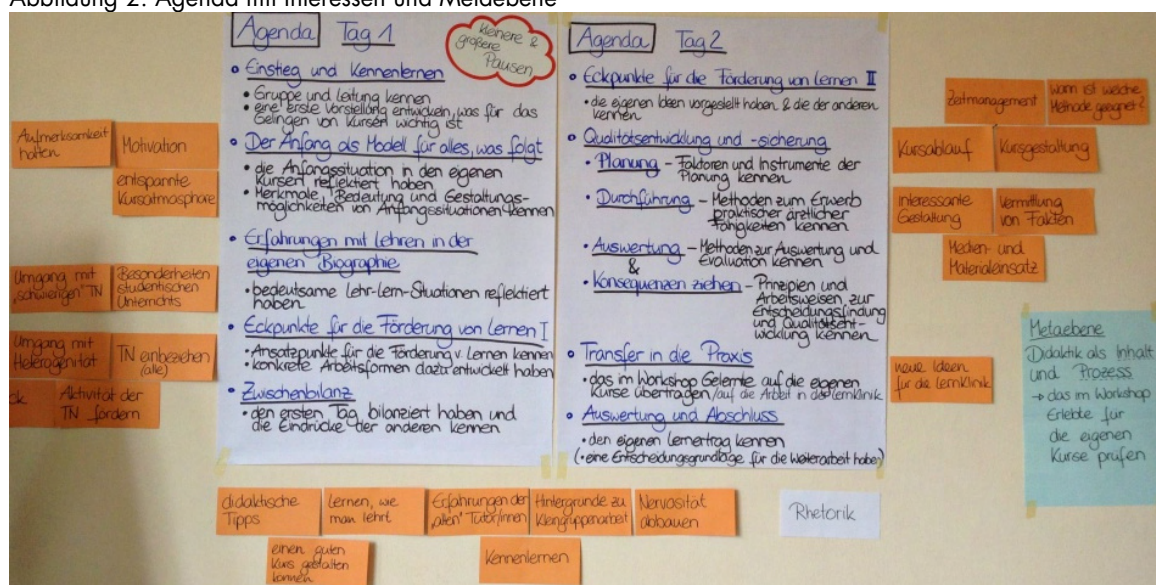 Abbildung 2: Agenda mit Interessen und Metaebene
Agenda Tag 1
kleinere &
größere
Pausen
• Einstieg und Kennenlernen
• Gruppe und Leitung kennen
• eine erste Vorstellung entwickeln, was für das
Gelingen von Kursen wichtig ist
• Der Anfang als Modell für alles, was folgt
• die Anfangssituation in den eigenen
Kursen reflektiert haben
• Merkmale, Bedeutung und Gestaltungs-
möglichkeiten von Anfangssituationen kennen
• Erfahrungen mit Lehren in der
eigenen Biographie
• bedeutsame Lehr-Lern-Situationen reflektiert
haben
• Eckpunkte für die Förderung von Lernen I
• Ansatzpunkte für die Förderung v. Lernen kennen
• konkrete Arbeitsformen dazu entwickelt haben
• Zwischenbilanz
• den ersten Tag bilanziert haben und
die Eindrücke der anderen kennen
Agenda Tag 2
• Eckpunkte für die Förderung von Lernen II
• die eigenen Ideen vorgestellt haben & die der anderen
kennen
• Qualitätsentwicklung und -sicherung
• Planung – Faktoren und Instrumente der
Planung kennen
• Durchführung – Methoden zum Erwerb
praktischer ärztlicher
Fähigkeiten kennen
• Auswertung – Methoden zur Auswertung und
& Evaluation kennen
• Konsequenzen ziehen – Prinzipien und
Arbeitsweisen zur
Entscheidungsfindung
und Qualitätsent-
wicklung kennen
• Transfer in die Praxis
• das im Workshop Gelernte auf die eigenen
Kurse übertragen/auf die Arbeit in der Lernklinik
• Auswertung und Abschluss
• den eigenen Lernertrag kennen
(• eine Entscheidungsgrundlage für die Weiterarbeit haben)
Aufmerksamkeit
halten
Motivation
entspannte
Kursatmosphäre
Umgang mit
„schwierigen" TN
Besonderheiten
studentischen
Unterrichts
Umgang mit
Heterogenität
TN einbeziehen
(alle)
ck
Aktivität der
TN fördern
Zeitmanagement
wann ist welche
Methode geeignet?
Kursablauf
Kursgestaltung
interessante
Gestaltung
Vermittlung
von Fakten
Medien- und
Materialeinsatz
neue Ideen
für die Lernklinik
Metaebene
Didaktik als Inhalt
und Prozess
→ das im Workshop
Erlebte für
die eigenen
Kurse prüfen
didaktische
Tipps
Lernen, wie
man lehrt
Erfahrungen der
„alten" Tutor/innen
Hintergründe zu
Kleingruppenarbeit
Nervosität
abbauen
Rhetorik
einen guten
Kurs gestalten
können
Kennenlernen